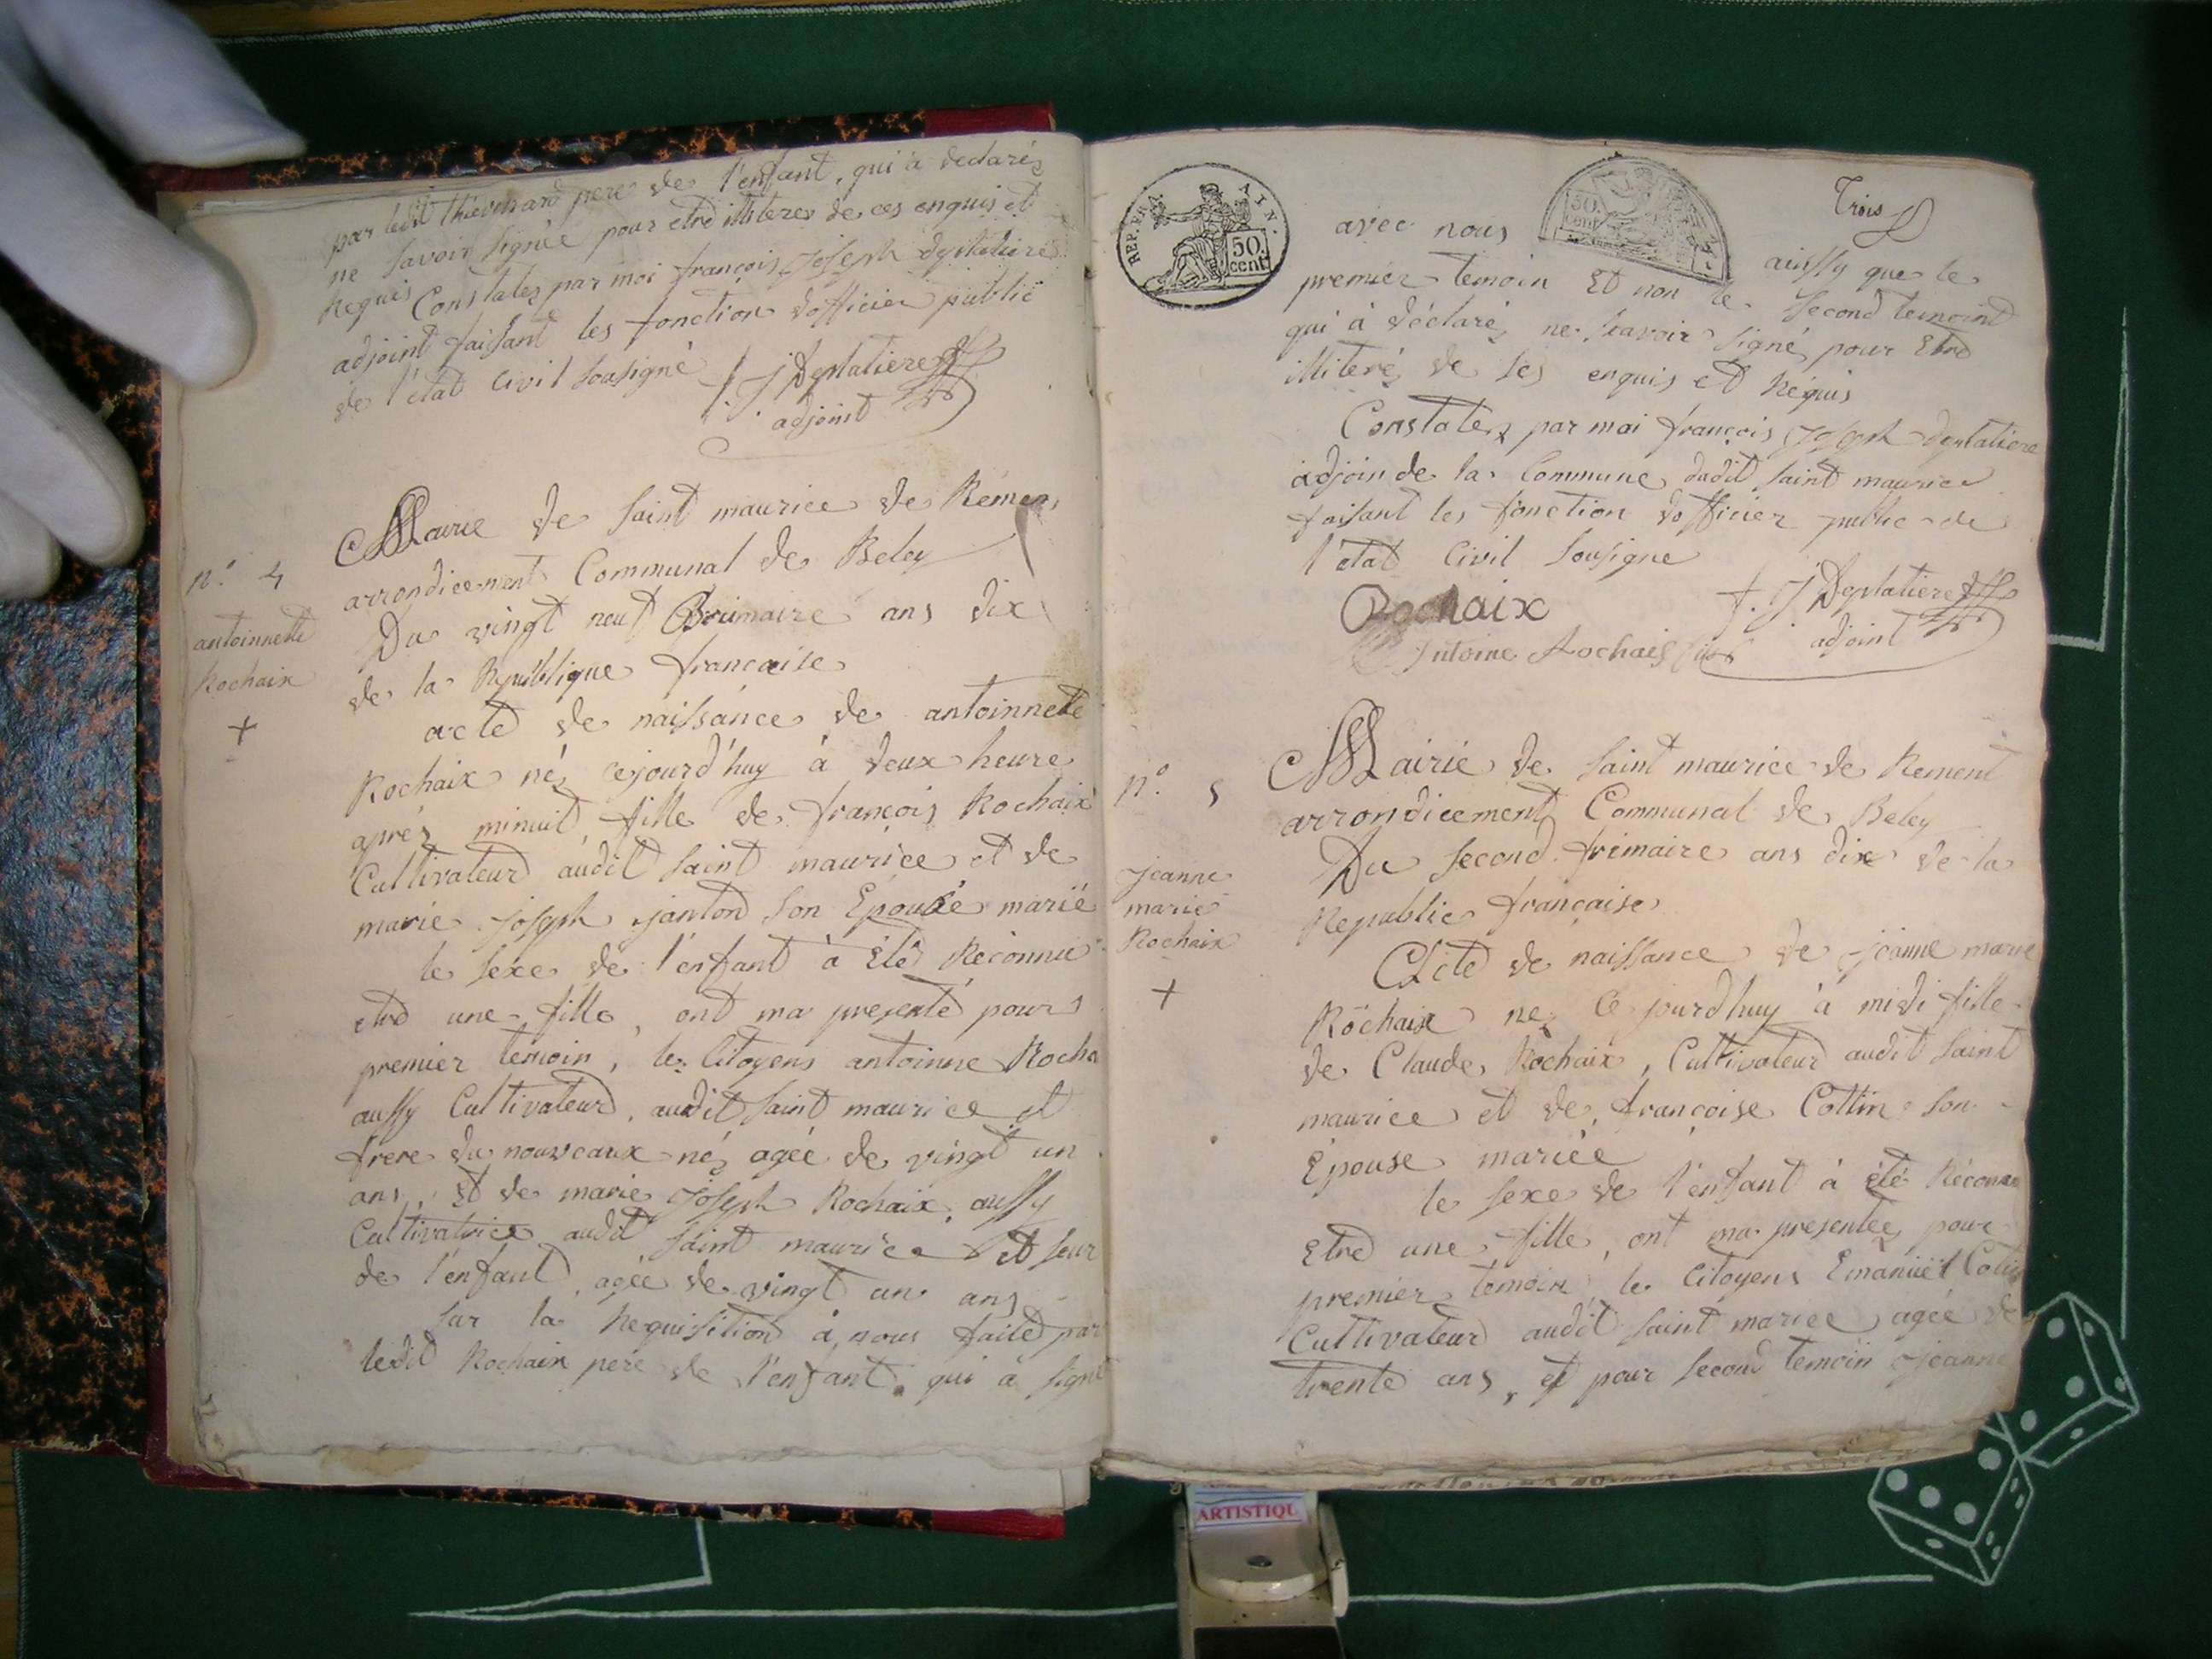 par ledit thievenard pere de l'enfant, qui à declaréz
ne savoir signée pour etre illiterez de ces enquis et
Requis Constatez par moi françois Joseph deplatiere
adjoint faisant les fonction d'officier public
de l'etat Civil sousigné f. j Deplatiere
adjoint
Mairie de saint maurice de Remens
arrondicement Communal de Beley
n.° 4
antoinnette
Rochaix
+
Du vingt neuf Brumaire ans dix
de la Republique francaise
acte de naissance de antoinnette
Rochaix néz cejourd'huy à deux heure
apréz minuit, fille de françois Rochaix
Cultivateur audit saint maurice et de
marie joseph janton son Epousée marié
le sexe de l'enfant à été Réconnue
etre une fille, ont ma presenté pour
premier temoin, le Citoyens antoinne Rocha
aussy Cultivateur, audit saint maurice et
frere du nouveaux néz agée de vingt un
ans, et de marie Joseph Rochaix, aussy
Cultivatrice audit saint maurice et seur
de l'enfant, agée de vingt un ans
sur la Requisition à nous faite par
ledit Rochaix pere de l'enfant, qui à signé
REP. FRA. AIN.
50.
cent
50.
cent
Trois
avec nous
ainssy que le
premier temoin Et non le second temoint
qui à déclaréz ne scavoir signé, pour Etre
illiteré, de ses enquis et Réquis
Constatez par moi françois Joseph deplatiere
adjoin de la Commune dudit saint maurice
faisant les fonction d'officier public de
l'etat Civil sousigne
Rochaix
f. J Deplatiere
Antoine Rochais fils
adjoint
Mairie de saint maurice de Rement
n.° 5
arrondicement Communal de Beley
Du second frimaire ans dix de la
Republic française
jeanne
marie
Rochaix
+
Acte de naissance de jeanne marie
Rochaix néz Ce jourdhuy à midi fille
de Claude Rochaix, Cultivateur audit saint
maurice et de françoise Cottin son
Epouse mariée
le sexe de l'enfant à été Réconnu
Etre une fille, ont ma presentée, pour
premier temoin, le Citoyens Emanüel Cotin
Cultivateur audit saint marice agée de
trente ans, et pour second temoin jeanne
ARTISTIQU